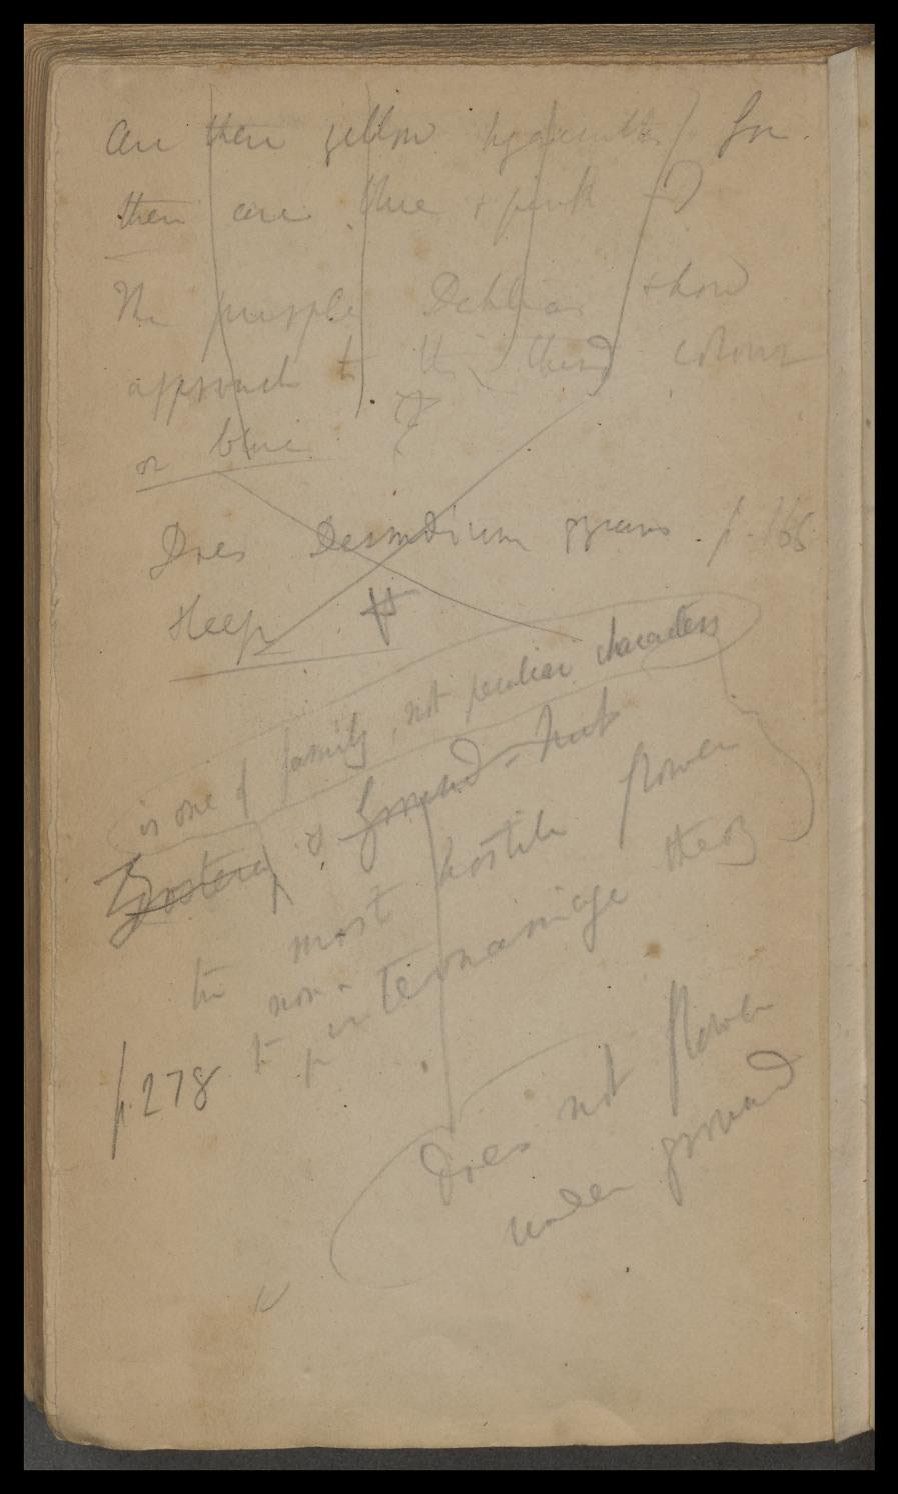 Are there yellow hyacinths for
there are blue & pink —?
The purple Dahlias show
approach to the third colour
or blue ?
Does Desmodium gyrans p. 165
sleep #
is one of family, not peculiar characters
Zostera & Ground-Nut
the most hostile flower
to non-intermarriage theory
p. 278
Does not flower
under ground